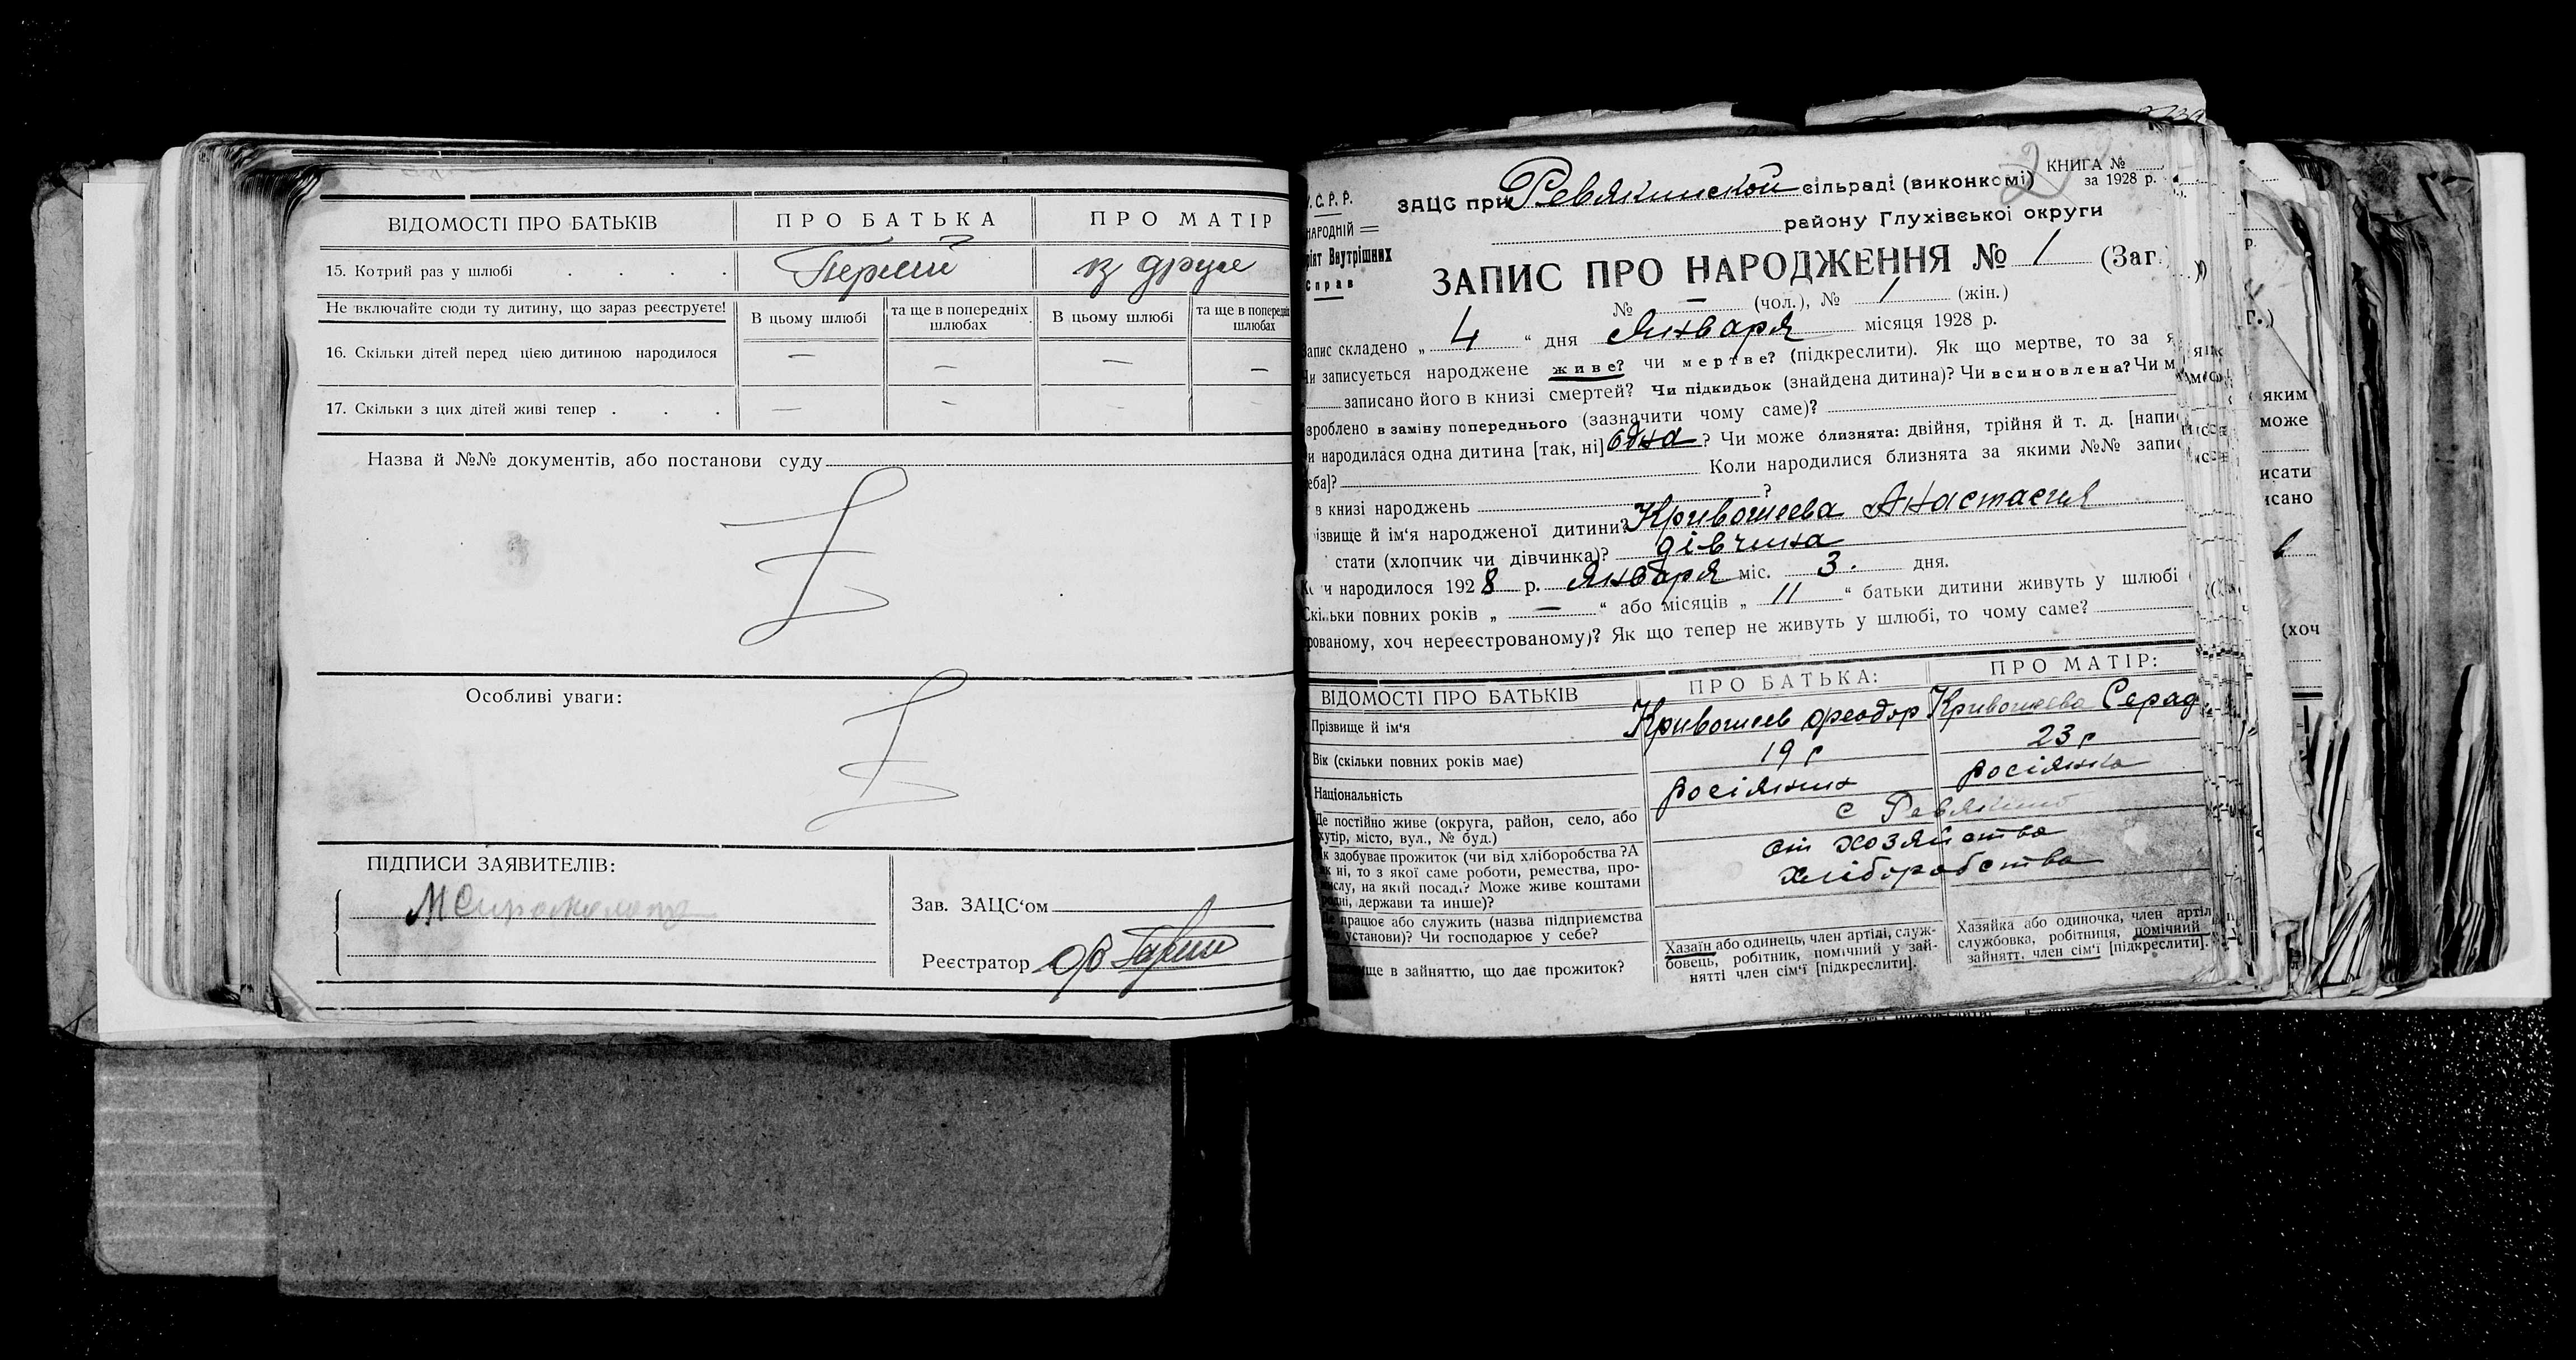 ВІДОМОСТІ ПРО БАТЬКІВ ПРО БАТЬКА ПРО МАТІР
15. Котрий раз у шлюбі . . . . Перший
Не включайте сюди ту дитину, що зараз реєструєте! В цьому шлюбі та ще в попередніх шлюбах В цьому шлюбі та ще в попередн шлюбах
16. Скільки дітей перед цією дитиною народилося — — — —
17. Скільки з цих дітей живі тепер . . . — - - -
Назва й №№ документів, або постанови суду
Особливі уваги:
ПІДПИСИ ЗАЯВИТЕЛІВ:
Зав. ЗАЦС‘ом
Реєстратор
У.С.Р.Р.
НАРОДНІЙ
ріят Внутрішних
Справ
КНИГА №
за 1928 р.
ЗАЦС при Ревякинской сільраді (виконкомі)
району Глухівської округи
ЗАПИС ПРО НАРОДЖЕННЯ № 1 (Заг.)
№ — (чол.), № 1 (жін.)
Запис складено „ 4 “ дня Января місяця 1928 р.
Чи записується народжене живе? чи мертве? (підкреслити). Як що мертве, то за я
записано його в книзі смертей? Чи підкидьок (знайдена дитина)? Чи всиновлена? Чи м
зроблено в заміну попереднього (зазначити чому саме)?
и народилася одна дитина [так, ні] одна ? Чи може близнята: двійня, трійня й т. д. [напи
еба]? Коли народилися близнята за якими №№ запи
в книзі народжень ?
ізвище й ім‘я народженої дитини? Кривошеева Анастасия
стати (хлопчик чи дівчинка)? дівчина
и народилося 1928 р. Января міс. 3. дня.
Скільки повних років „ — “ або місяців „ 11 “ батьки дитини живуть у шлюбі (
рованому, хоч нереєстрованому)? Як що тепер не живуть у шлюбі, то чому саме?
ВІДОМОСТІ ПРО БАТЬКІВ ПРО БАТЬКА: ПРО МАТІР:
Прізвище й ім‘я Кривошеев Феодор Кривошеева Серад
Вік (скільки повних років має) 19 р 23 р
Національність росіянин росіянка
Де постійно живе (округа, район, село, або
хутір, місто, вул., № буд.) с Ревякино
як здобуває прожиток (чи від хліборобства ?А
як ні, то з якої саме роботи, ремества, про-
мислу, на якій посаді? Може живе коштами
родні, держави та инше)?
от хозяйства
хліборобства
працює або служить (назва підприємства
установи)? Чи господарює у себе?
ще в зайняттю, що дає прожиток?
Хазаїн або одинець, член артілі, служ-
бовець, робітник, помічний у зай-
нятті член сім‘ї [підкреслити].
Хазяйка або одиночка, член артіл
службовка, робітниця, помічний
зайнятт. член сім‘ї [підкреслити].
яким
може
исати
исано
(хоч